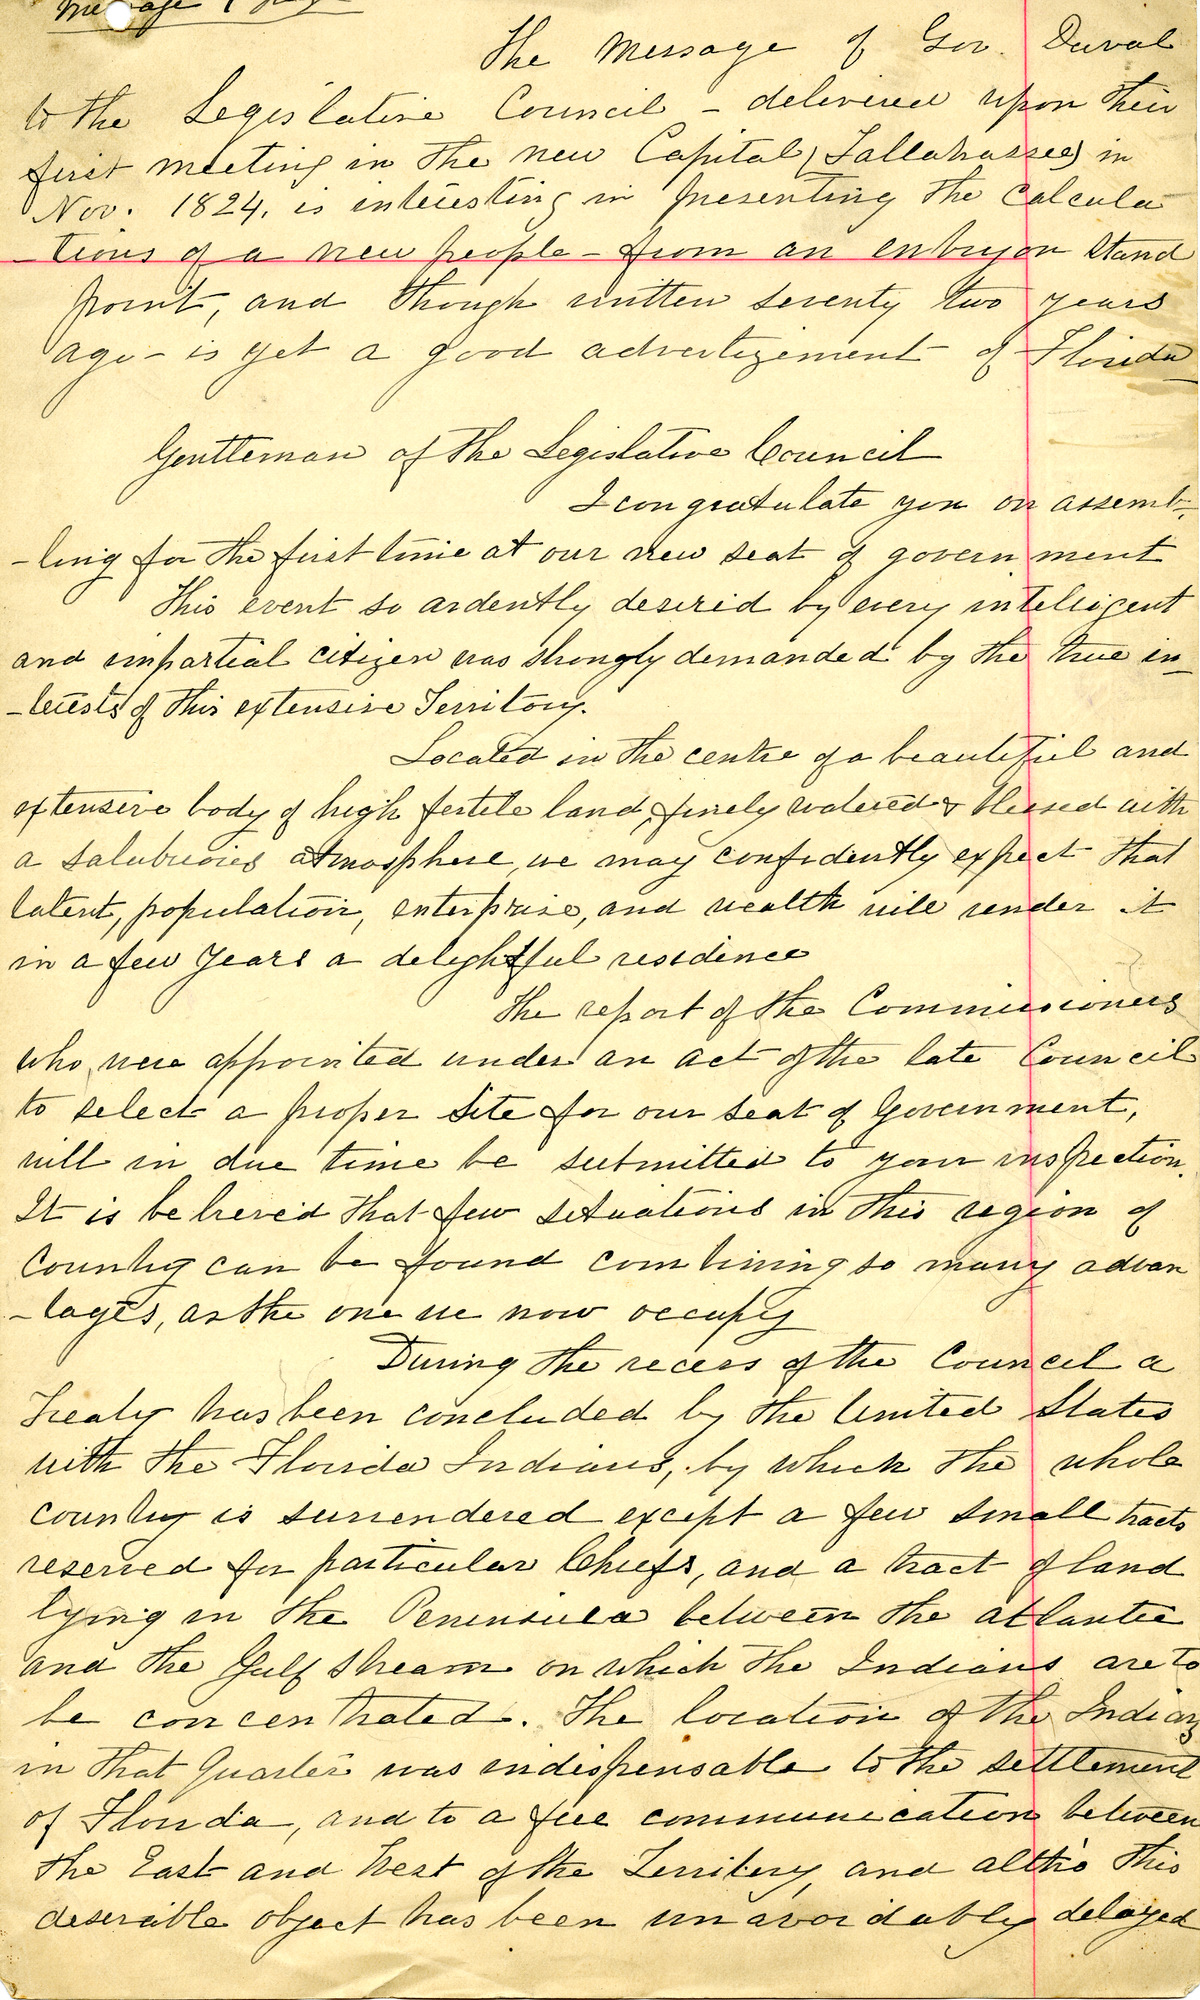 Message
The Message of Gov. Duval
to the Legislative Council – delivered upon their
first meeting in the new Capital (Tallahassee) in
Nov. 1824. is interesting in presenting the calcula
-tions of a new people – from an embryon stand
point, and though written seventy two years
ago – is yet a good advertizement of Florida
Gentleman of the Legislative Council
I congratulate you on assemb-
-ling for the first time at our new seat of government
This event so ardently desired by every intelligent
and impartial citizen was strongly demanded by the true in-
-terests of this extensive Territory.
Located in the centre of a beautiful and
extensive body of high fertile land, finely watered & blessed with
a salubrious atmosphere, we may confidently expect that
latent, population, enterprise, and wealth will render it
in a few years a delightful residence
The report of the Commissioners
who were appointed under an act of the late Council
to select a proper site for our seat of Government,
will in due time be submitted to your inspection.
It is believed that few situations in this region of
Country can be found combining so many advan
-tages, as the one we now occupy
During the recess of the Council a
Treaty has been concluded by the United States
with the Florida Indians, by which the whole
country is surrendered except a few small tracts
reserved for particular Chiefs, and a tract of land
lying in the Peninsula between the atlantic
and the Gulf Stream on which the Indians are to
be concentrated. The location of the Indians
in that Quarter was indispensable to the settlement
of Florida, and to a free communication between
the East and West of the Territory, and altho this
desirable object has been unavoidably delayed